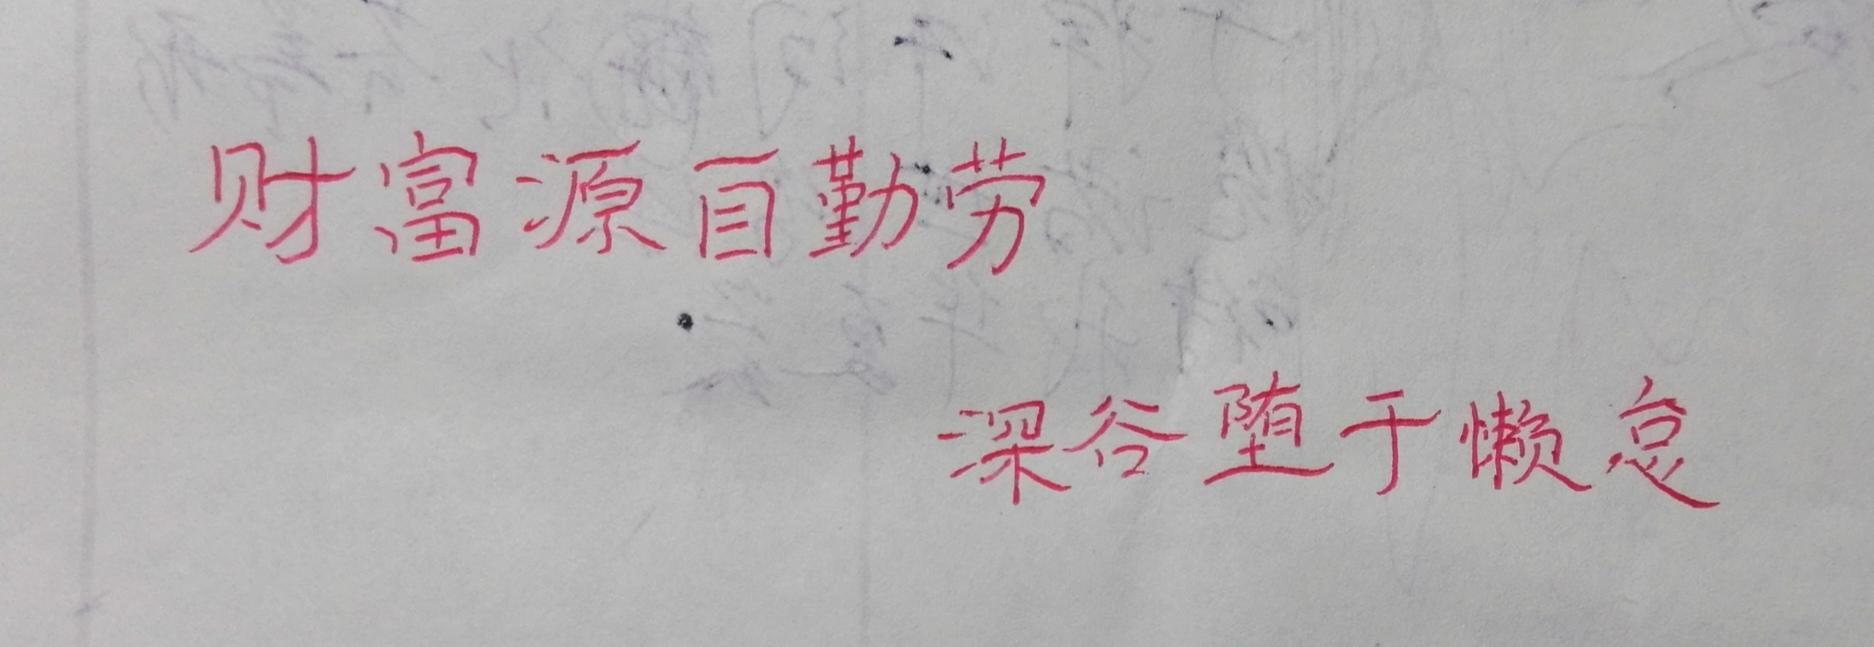 财富源自勤劳
深谷堕于懒怠